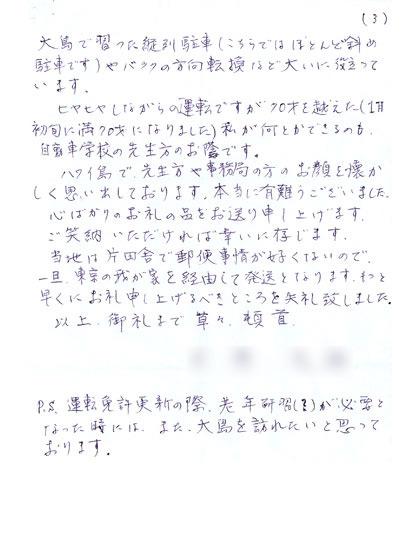 (3)
大島で習った縦列駐車(こちらではほとんど斜め
駐車です)やバックの方向転換など大いに役立って
います。
ヒヤヒヤしながらの運転ですが70才を越えた(1月
初旬に満70才になりました)私が何とかできるのも、
自動車学校の先生方のお陰です。
ハワイ島で、先生方や事務局の方のお顔を懐か
しく思い出しております。本当に有難うございました。
心ばかりのお礼の品をお送り申し上げます。
ご笑納いただければ幸いに存じます。
当地は片田舎で郵便事情が好くないので、
一旦、東京の我が家を経由して発送となります。もっと
早くにお礼申し上げるべきところを失礼致しました。
以上、御礼まで 草々、頓首
P.S. 運転免許更新の際、老年研習(?)が必要と
なった時には、また、大島を訪れたいと思って
おります。